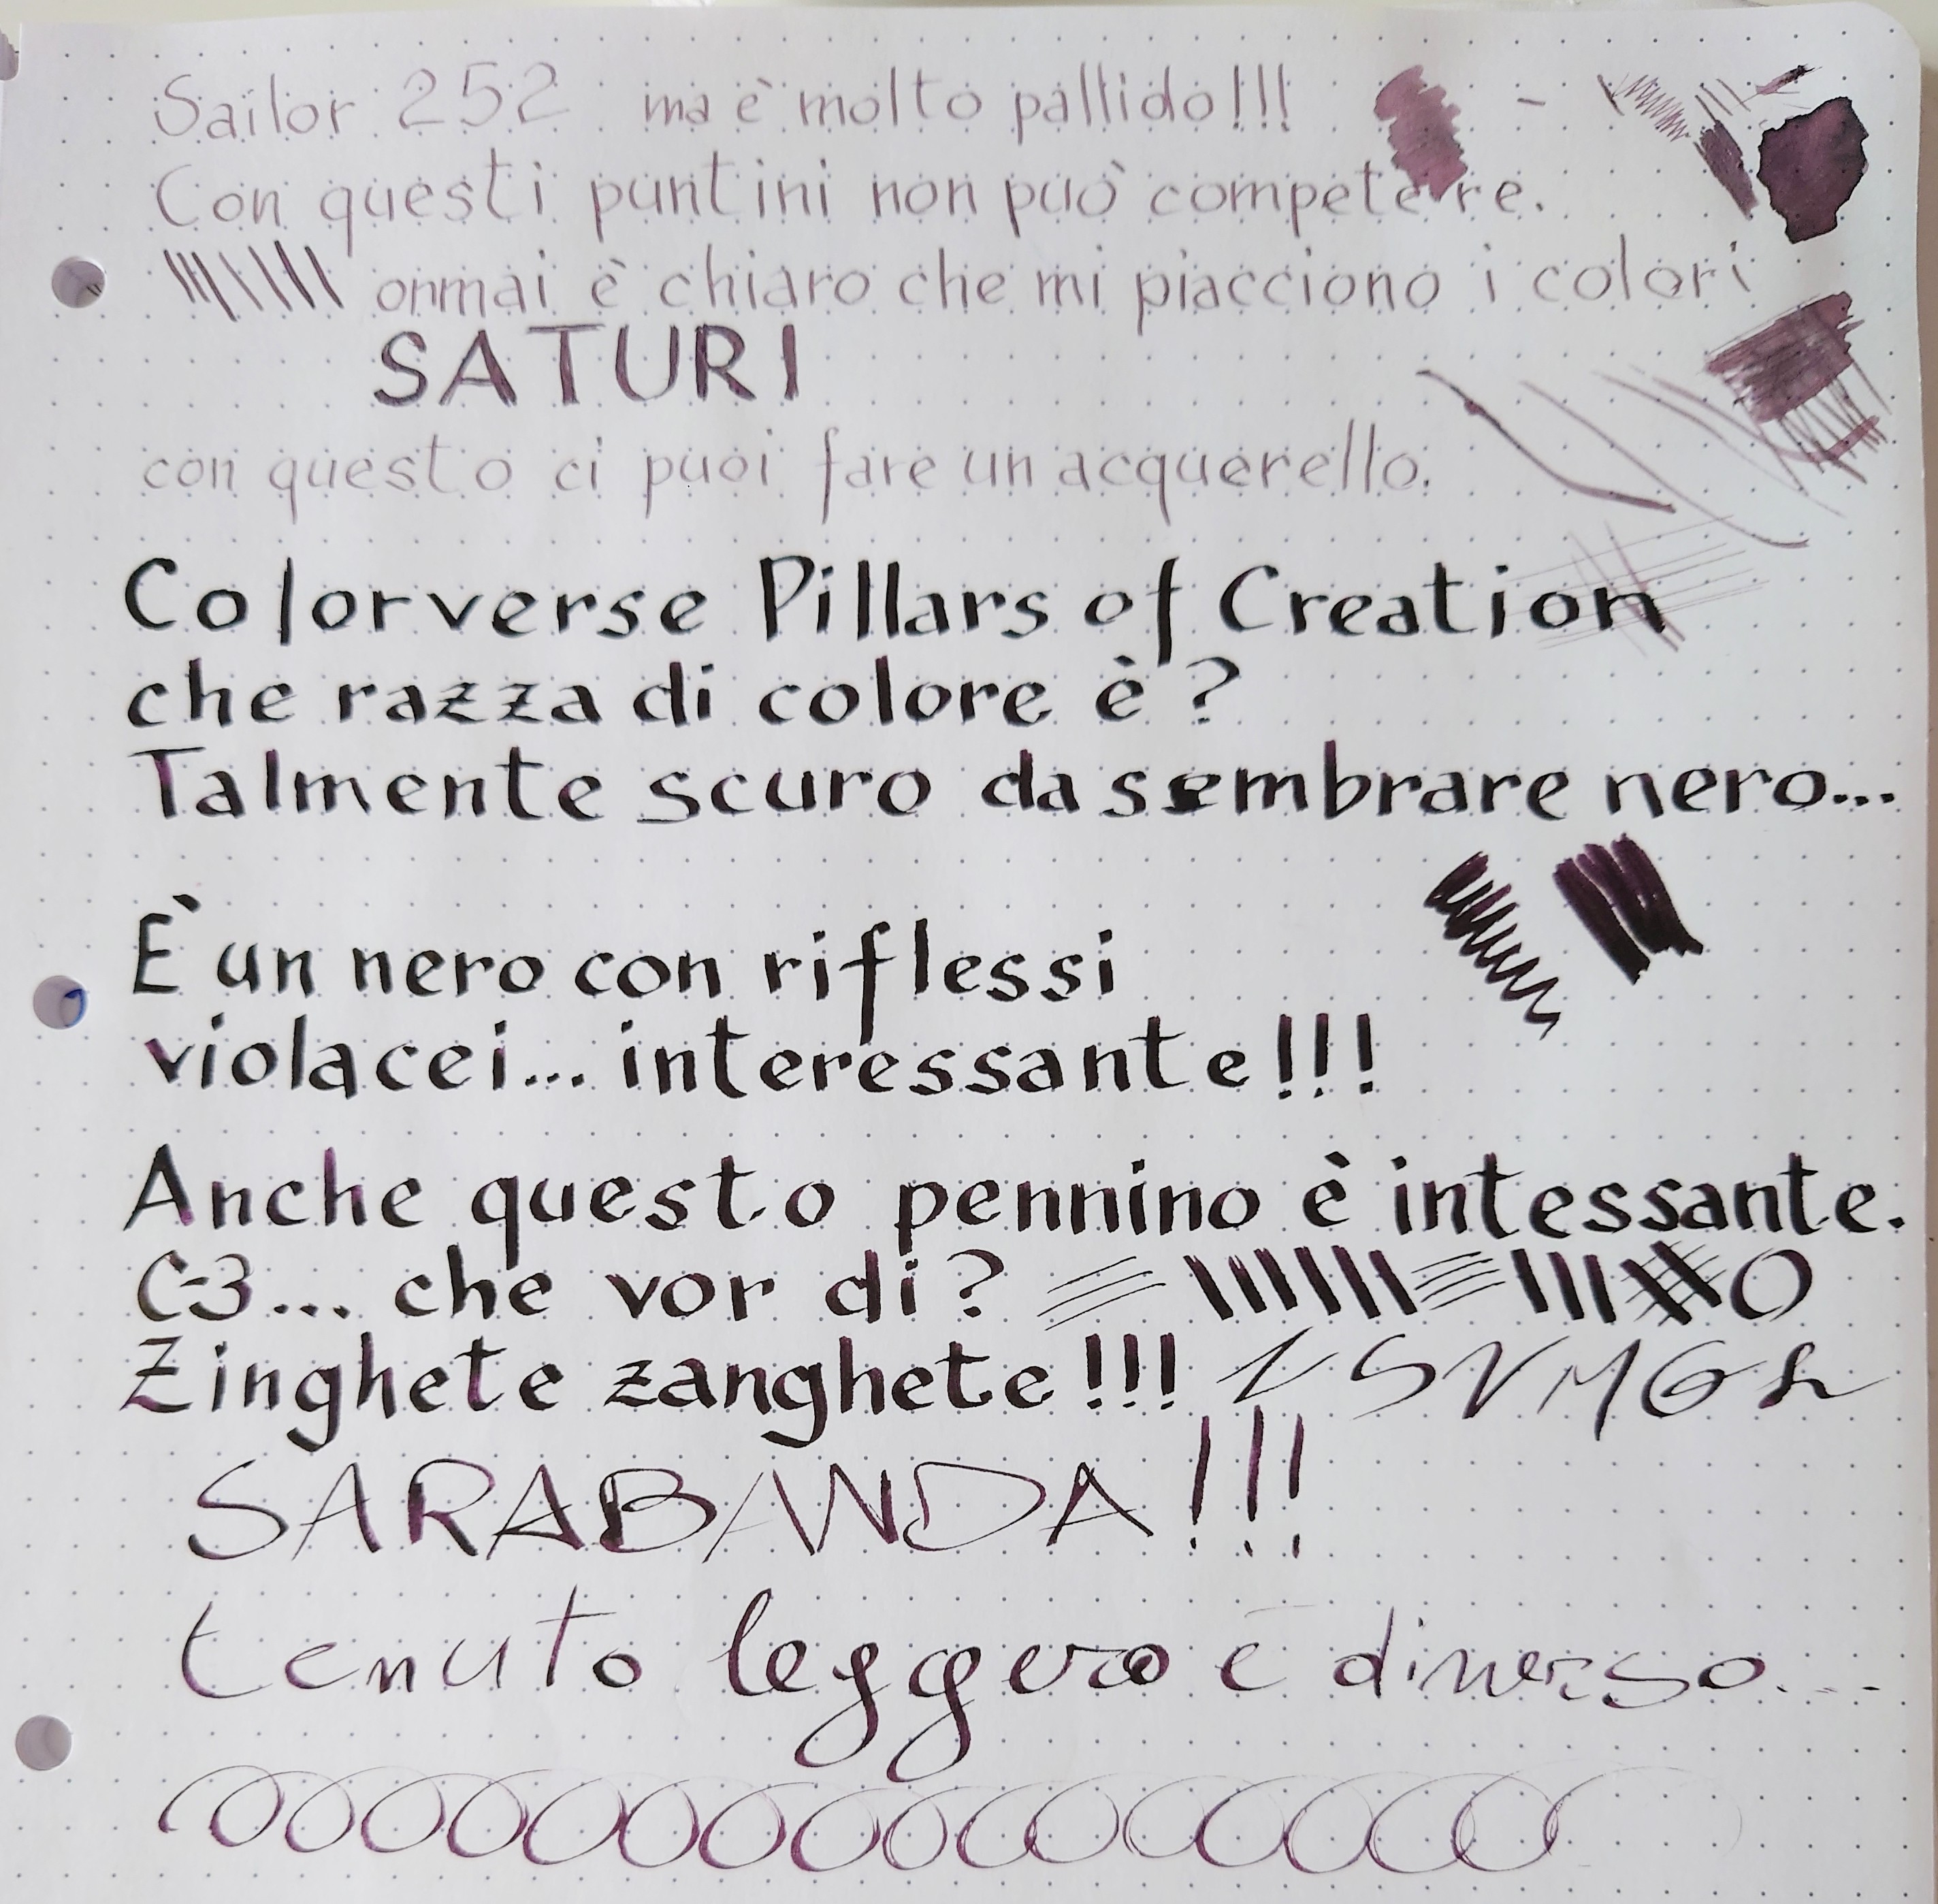 Sailor 252 ma è molto pallido!!!
Con questi puntini non può competere.
onmai è chiaro che mi piacciono i colori
SATURI
con questo ci puoi fare un acquerello.
Colorverse Pillars of Creation
che razza di colore è?
Talmente scuro da sembrare nero...
È un nero con riflessi
violacei... interessante!!!
Anche questo pennino è intessante.
C-3... che vor di?
Zinghete zanghete!!! N S V M G R
SARABANDA!!!
tenuto leggero è diverso...